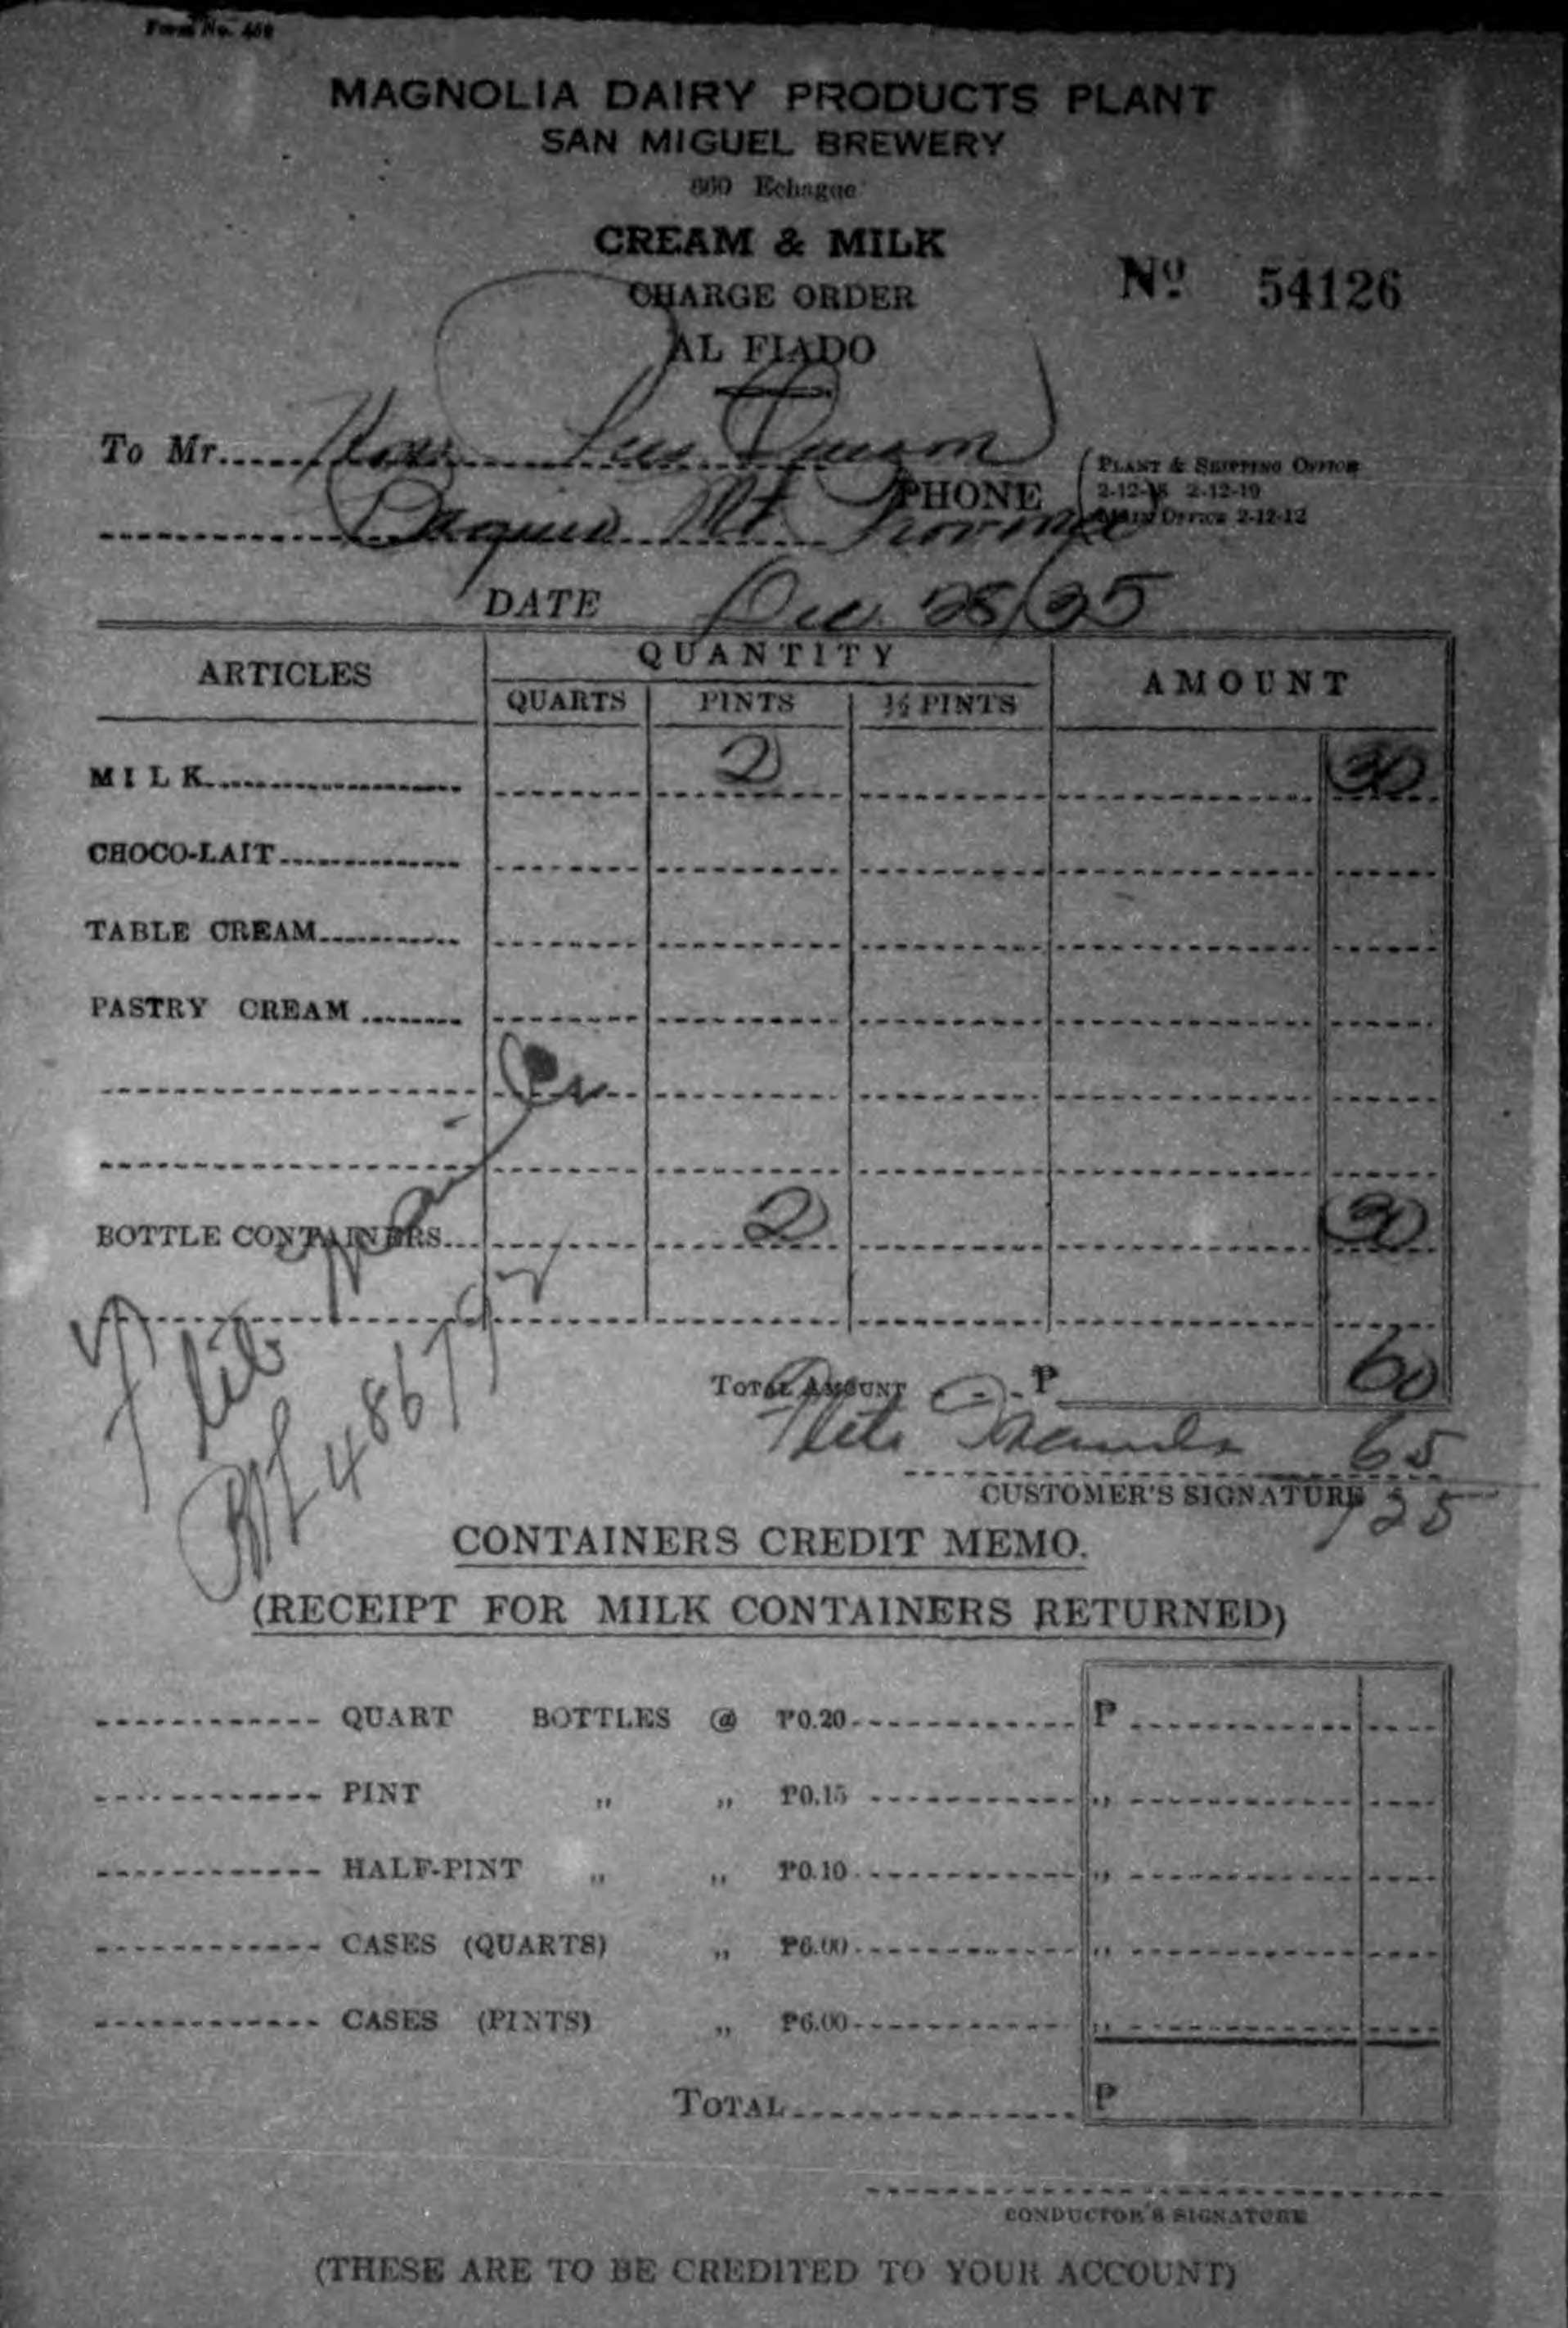 Form No. 459
MAGNOLIA DAIRY PRODUCTS PLANT
SAN MIGUEL BREWERY
860 Echague
CREAM & MILK
CHARGE ORDER
Nº 54126
AL FIADO
To Mr. Hon.
PHONE
PLANT & SHIPPING OFFICE
2-12-18 2-12-19
MAIN OFFICE 2-12-12
Baguio Mt. Province
DATE Dec. 28/35
ARTICLES QUANTITY AMOUNT
QUARTS PINTS ½ PINTS
MILK 2 30
CHOCO-LAIT
TABLE CREAM
PASTRY CREAM
BOTTLE CONTAINERS 2 30
TOTAL AMOUNT ₱ 60
65
CUSTOMER'S SIGNATURE
CONTAINERS CREDIT MEMO.
(RECEIPT FOR MILK CONTAINERS RETURNED)
QUART BOTTLES @ ₱0.20 ₱
PINT ,, ,, ₱0.15 ,,
HALF-PINT ,, ,, ₱0.10 ,,
CASES (QUARTS) ,, ₱6.00 ,,
CASES (PINTS) ,, ₱6.00 ,,
TOTAL ₱
CONDUCTOR'S SIGNATURE
(THESE ARE TO BE CREDITED TO YOUR ACCOUNT)